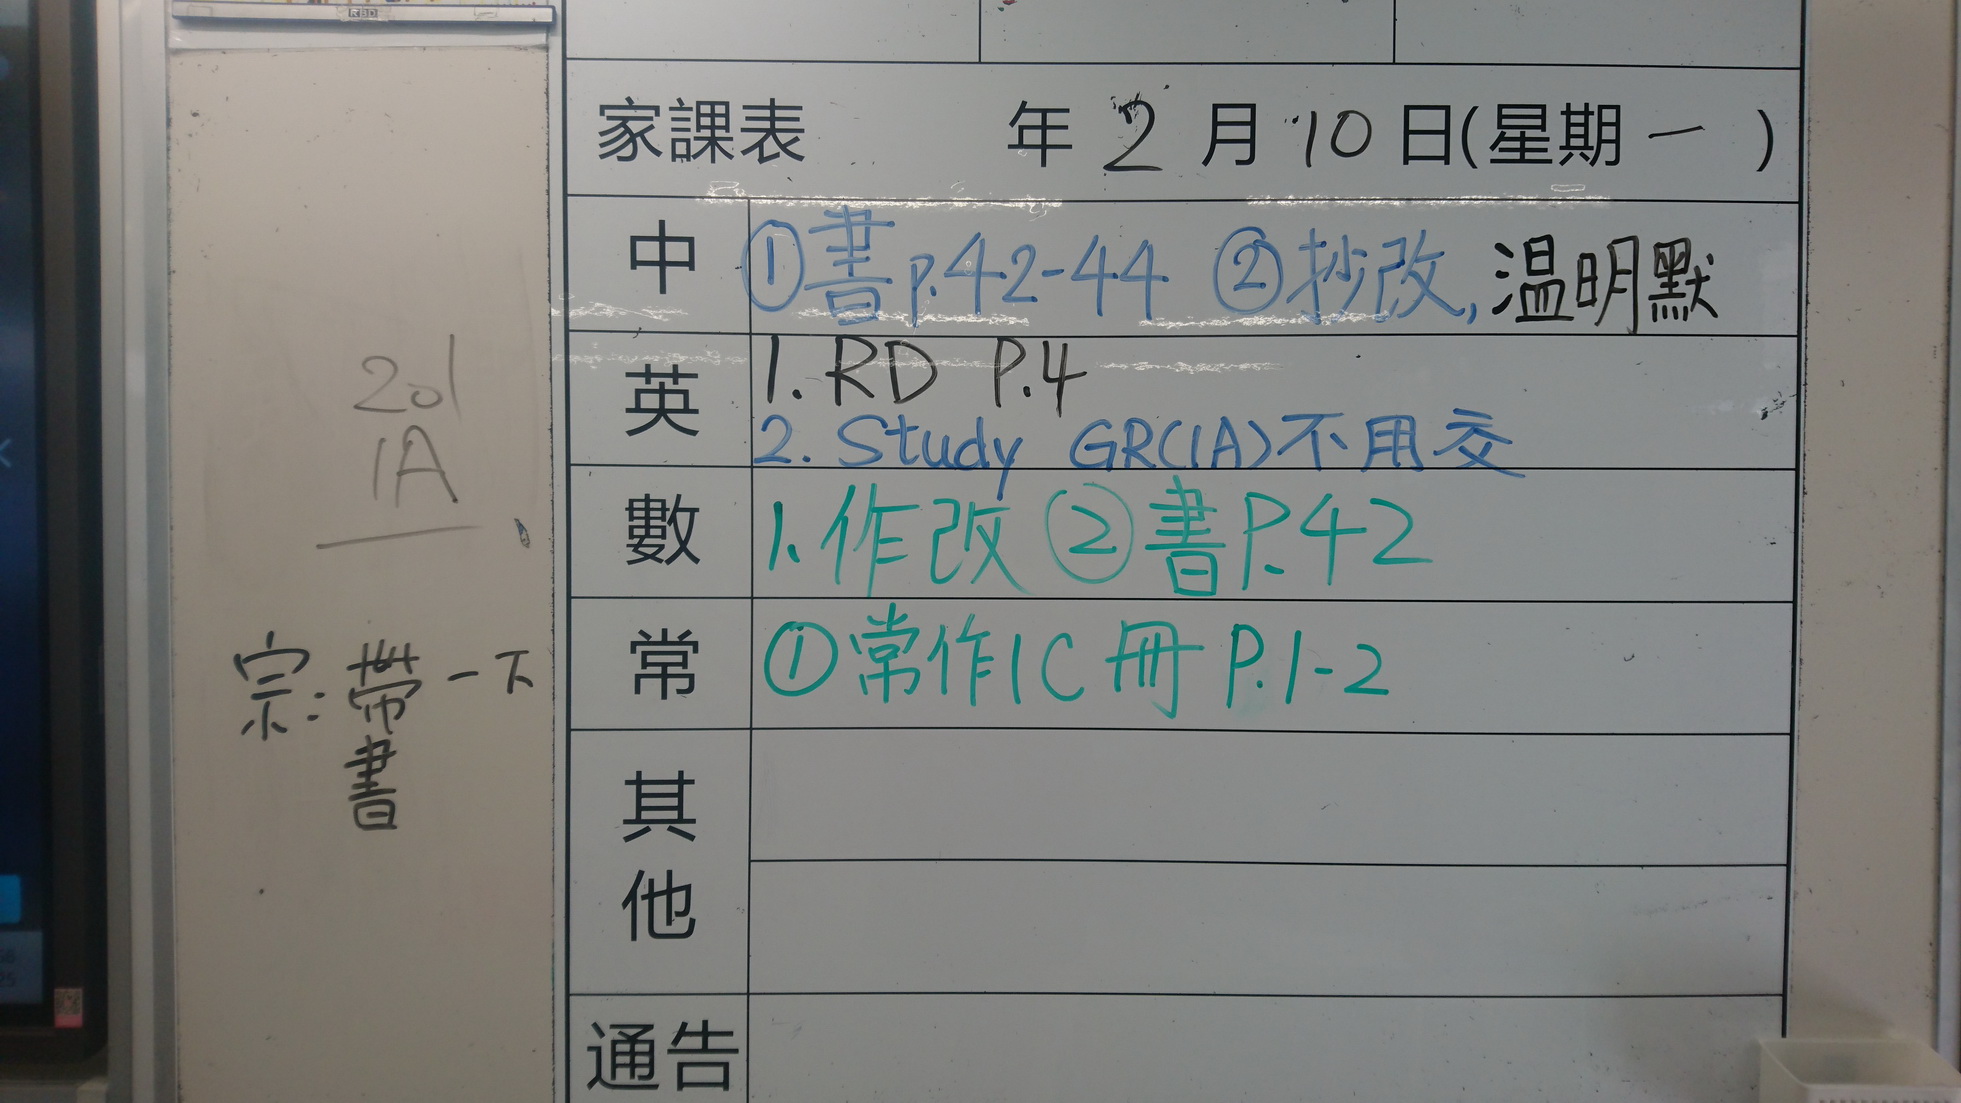 RBD
家課表 年 2 月 10 日(星期一)
中 ①書p.42-44 ②抄改,温明默
英 1. RD P.4
2. Study GR(1A)不用交
數 1.作改 ②書P.42
常 ①常作1C冊 P.1-2
其他
通告
201
1A
宗:帶一下
書